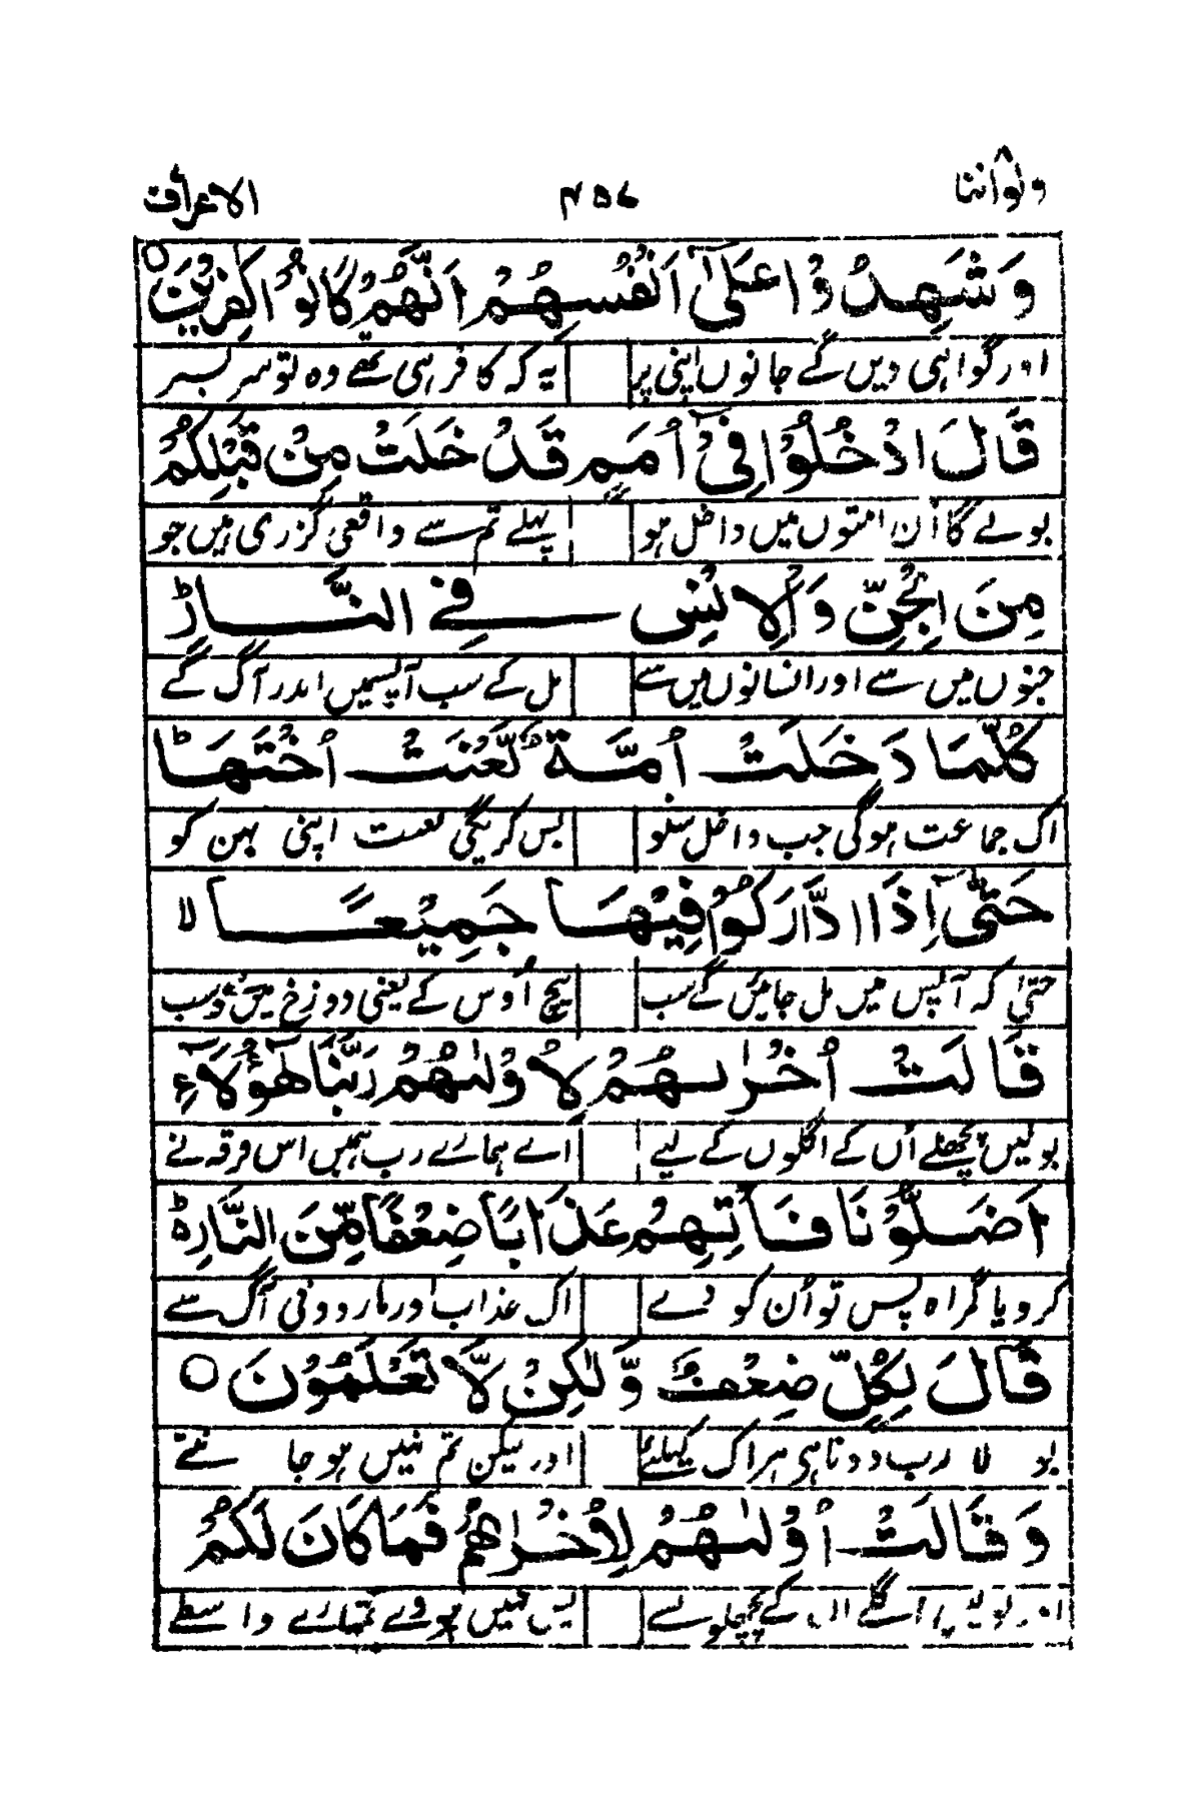 ولواننا ۸ ۴۵۷ الاعراف
وَشَهِدُوْا عَلٰٓى اَنْفُسِهِمْ اَنَّهُمْ كَانُوْا كٰفِرِيْنَ ○
اور گواہی دیں گے جانوں اپنی پر یہ کہ کافر ہی تھے وہ تو سر بسر
قَالَ ادْخُلُوْا فِيْٓ اُمَمٍ قَدْ خَلَتْ مِنْ قَبْلِكُمْ
بولے گا اُن امتوں میں داخل ہو پہلے تم سے واقعی گزری ہیں جو
مِنَ الْجِنِّ وَالْاِنْسِ فِي النَّارِ ؕ
جنوں میں سے اور انسانوں میں سے مل کے سب آپسمیں اندر آگ گے
كُلَّمَا دَخَلَتْ اُمَّةٌ لَّعَنَتْ اُخْتَهَا ؕ
اک جماعت ہوگی جب داخل سنو بس کریگی لعنت اپنی بہن کو
حَتّٰٓى اِذَا ادَّارَكُوْا فِيْهَا جَمِيْعًا ۙ
حتیٰ کہ آپس میں مل جائیں گے سب بیچ اُوس کے یعنی دوزخ میں وُسب
قَالَتْ اُخْرٰىهُمْ لِاُوْلٰىهُمْ رَبَّنَا هٰٓؤُلَآءِ
بولیں پچھلے اُن کے اگلوں کے لیے اے ہمارے رب ہمیں اس فرقہ نے
اَضَلُّوْنَا فَاٰتِهِمْ عَذَابًا ضِعْفًا مِّنَ النَّارِ ؕ
کر دیا گمراہ پس تو اُن کو دے اک عذاب اور مار دونی آگ سے
قَالَ لِكُلٍّ ضِعْفٌ وَّلٰكِنْ لَّا تَعْلَمُوْنَ ○
بو لا رب دوتا ہی ہر اک کیلئے اور لیکن تم نہیں ہو جا نتے
وَقَالَتْ اُوْلٰىهُمْ لِاُخْرٰىهُمْ فَمَا كَانَ لَكُمْ
اگلے ان کے پچھلوں سے نہیں ہووے تمہارے واسطے